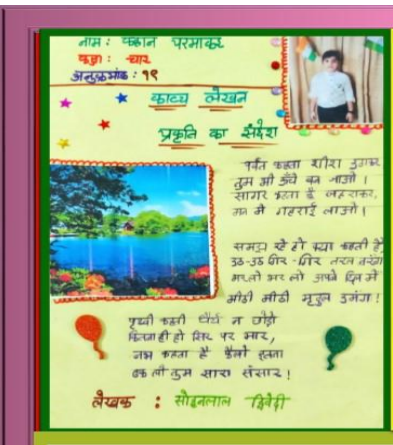 नाम : परमाकर
कक्षा : चार
अनुक्रमांक : १९
काव्य लेखन
प्रकृति का संदेश
पर्वत कहता शीश उठाकर
तुम भी ऊँचे बन जाओ ।
सागर कहता है लहराकर,
मन में गहराई लाओ ।
समझ रहे हो क्या कहती है
उठ-उठ गिर-गिर तरल तरंग
भर लो भर लो अपने दिल में
मीठी मीठी मृदुल उमंग !
पृथ्वी कहती धैर्य न छोड़ो
कितना ही हो सिर पर भार,
नभ कहता है फैलो इतना
ढक लो तुम सारा संसार !
लेखक : सोहनलाल द्विवेदी